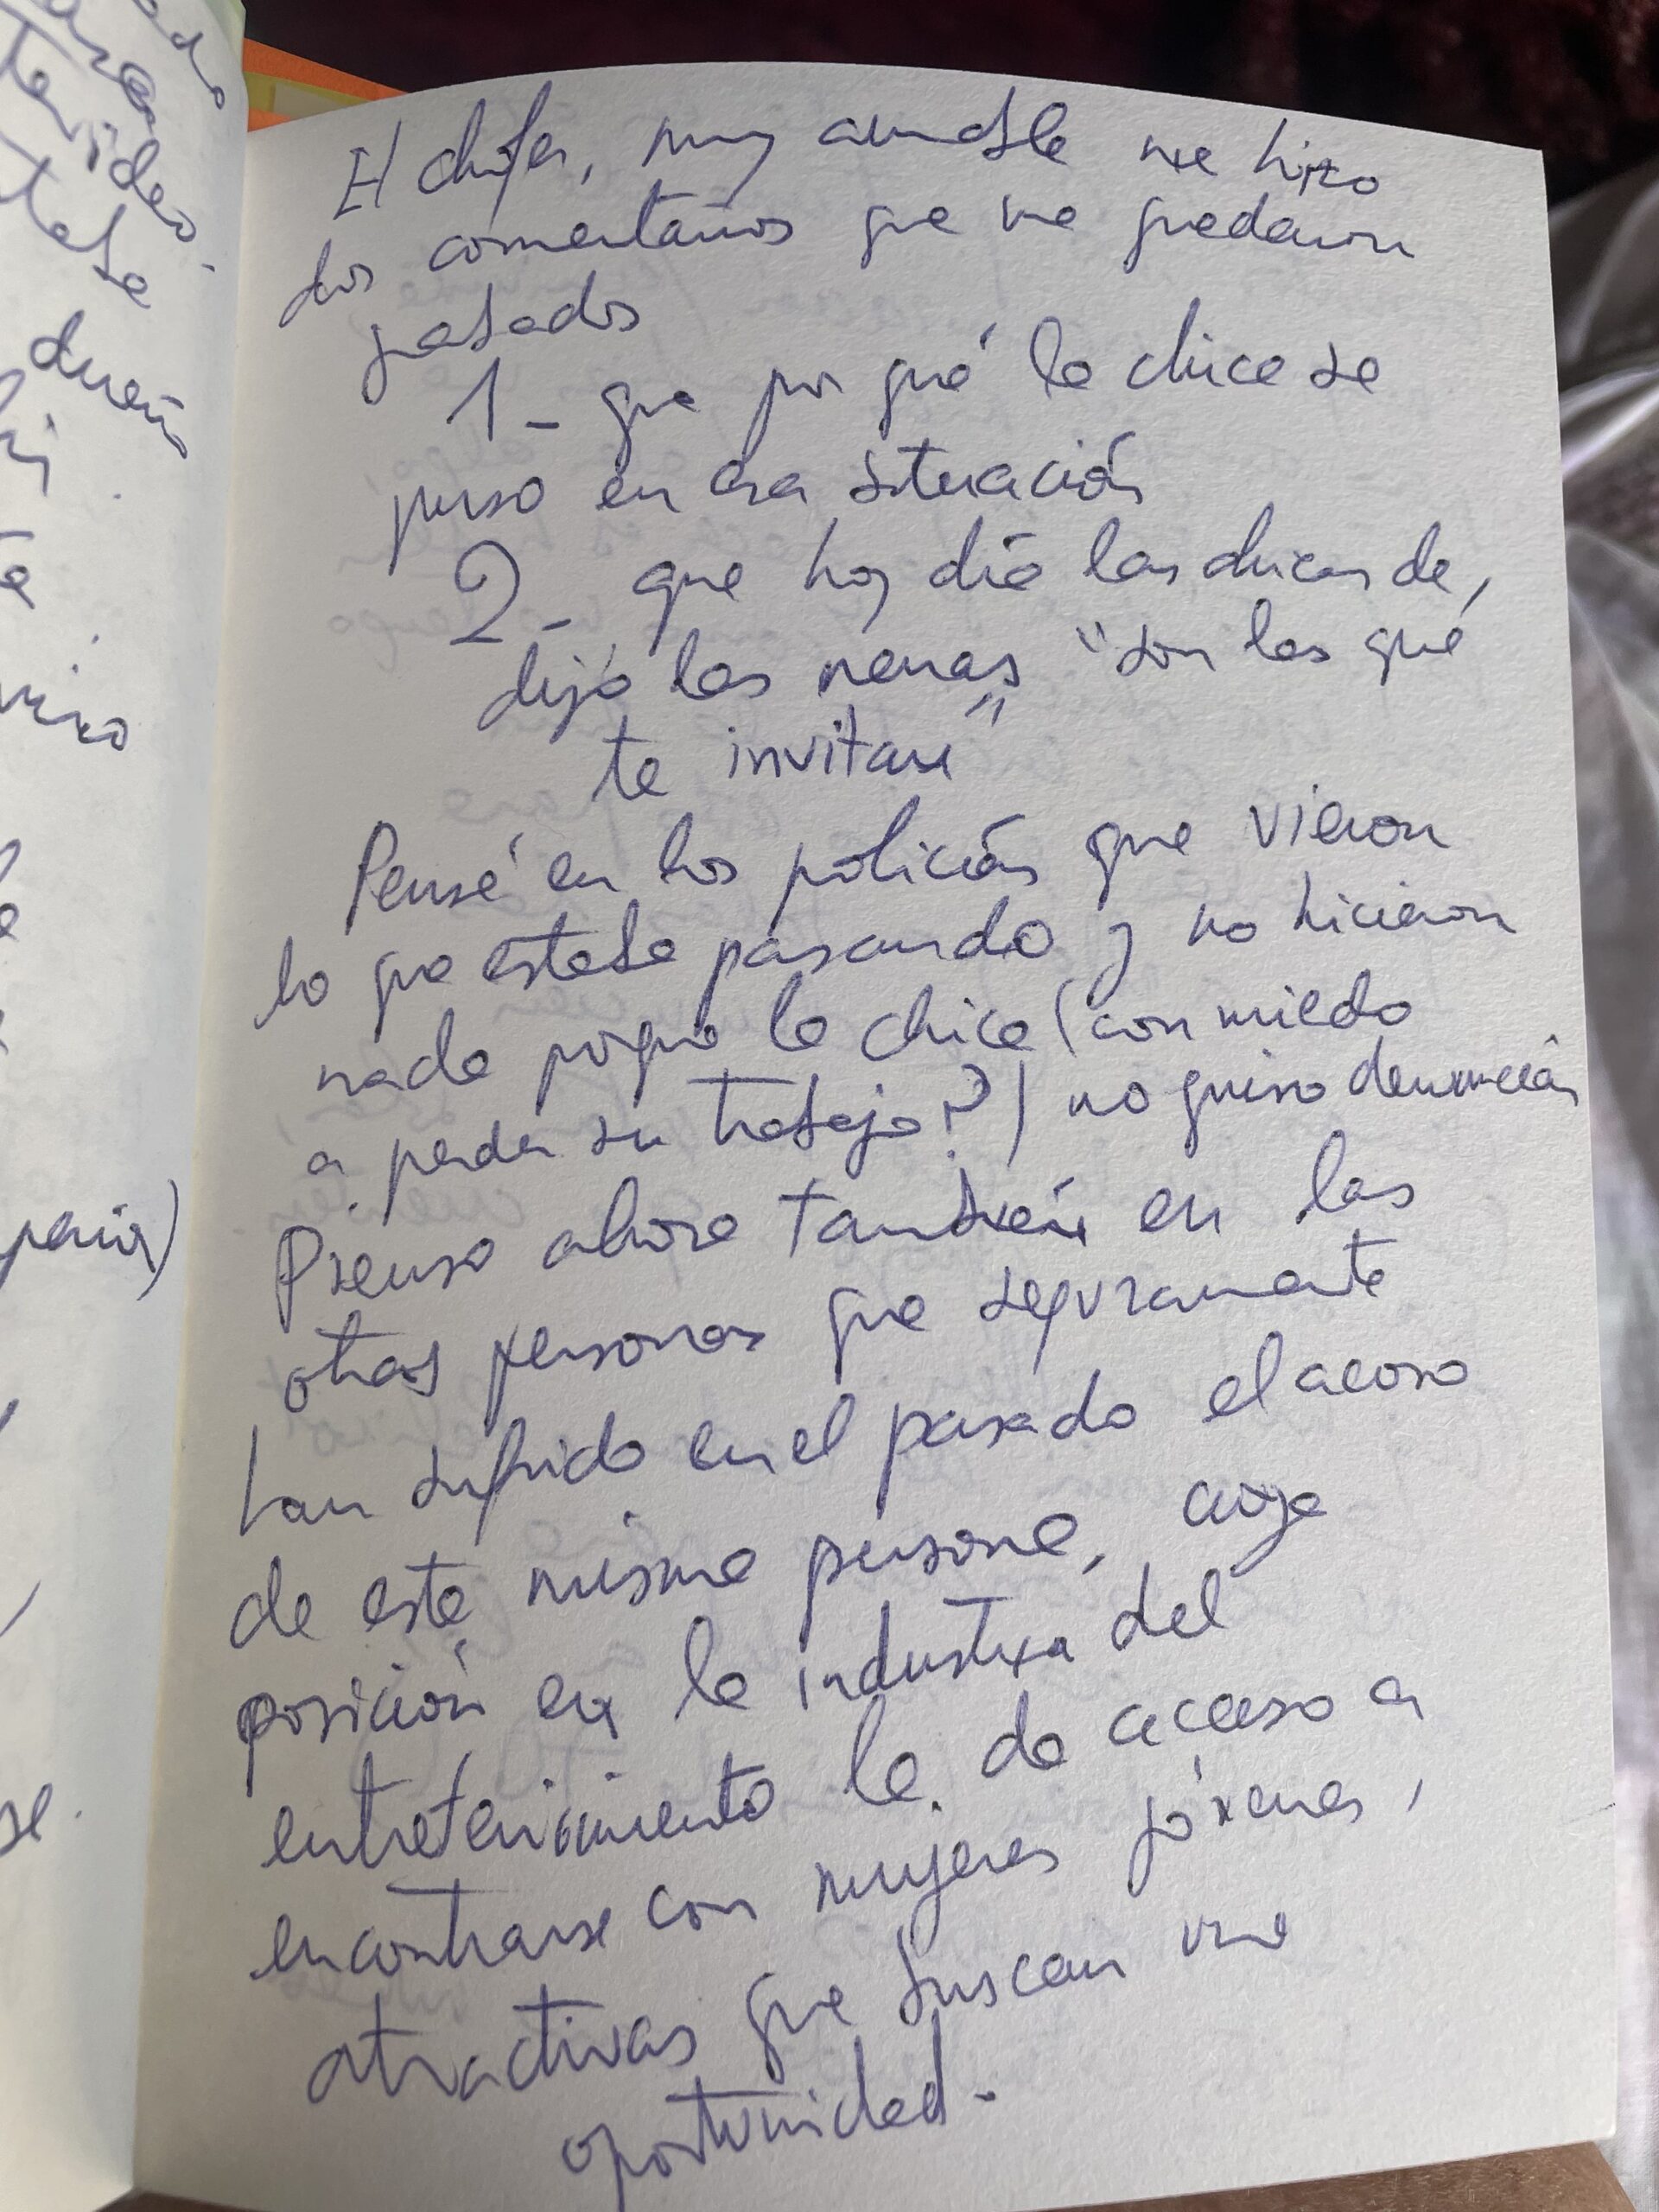 El chofer, muy amable me hizo
dos comentarios que me quedaron
grabados
1- que por qué la chica se
puso en esa situación
2- que hoy día las chicas de,
dijo las nenas "son las que
te invitan"
Pensé en los policías que vieron
lo que estaba pasando y no hicieron
nada porque la chica (con miedo
a perder su trabajo?) no quiso denunciar
Pienso ahora también en las
otras personas que seguramente
han sufrido en el pasado el acoso
de esta misma persona, cuya
posición en la industria del
entretenimiento le da acceso a
encontrarse con mujeres jóvenes,
atractivas que buscan una
oportunidad.
dueño